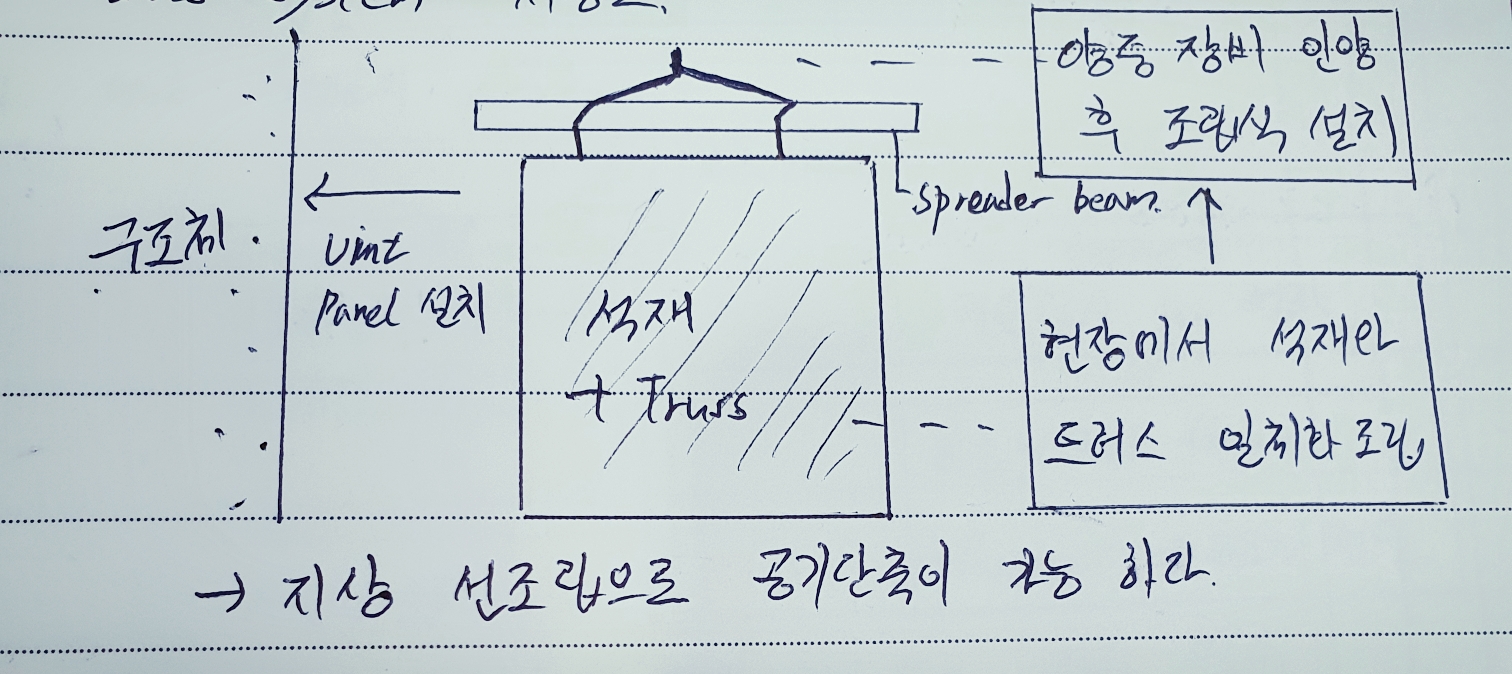 system
양중 장비 인양
후 조립식 설치
spreader beam.
구조체
Uint
Panel 설치
석재
+ Truss
현장에서 석재와
트러스 일체화 조립
→ 지상 선조립으로 공기단축이 가능 하다.